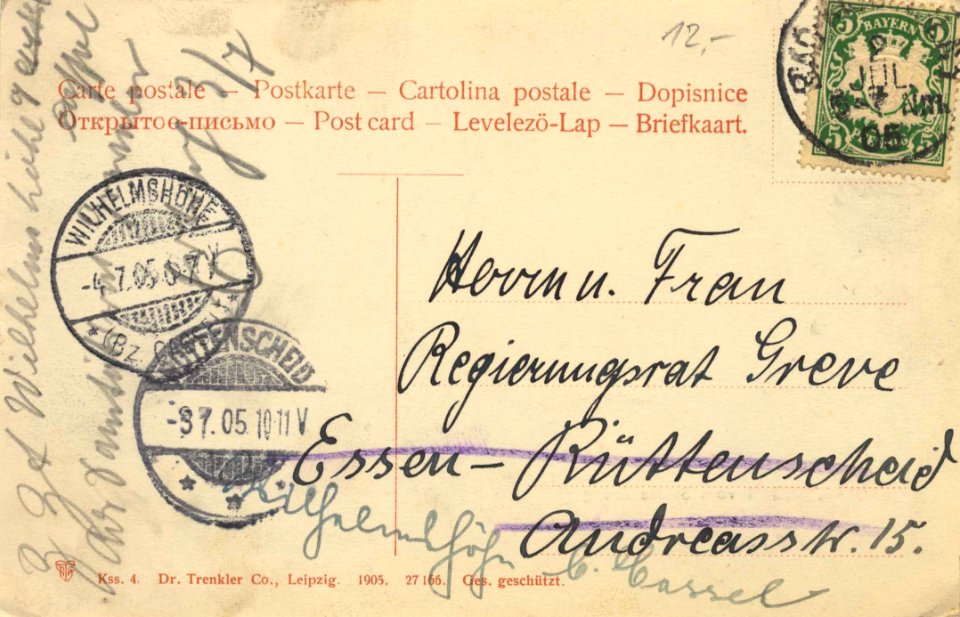 12.-
5 BAYERN 5
2 JUL
Nm.
05
5 5
Carte postale — Postkarte — Cartolina postale — Dopisnice
Открытое-письмо — Post card — Levelező-Lap — Briefkaart.
WILHELMSHÖHE
-4.7.05.6-7V
(Bz.
RÜTTENSCHEID
-3 7.05 10-11V
Herrn u. Frau
Regierungsrat Greve
Essen — Rüttenscheid
Andreasstr. 15.
Wilhelmshöhe b. Cassel
Wilhelmshöhe
3/7
Kss. 4. Dr. Trenkler Co., Leipzig. 1905. 27 166. Ges. geschützt.